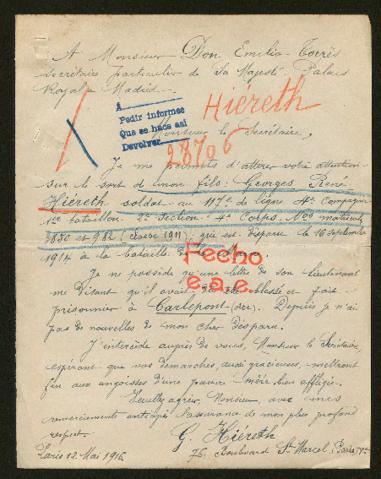 A Monsieur Don Emilio Torrès
secrétaire particulier de Sa Majesté Palais
Royal Madrid
Hiéreth
A
Pedir informes
Que se haga así
Devolver
28706
Monsieur le Secrétaire,
Je me permets d'attirer votre attention
sur le sort de mon fils: Georges René
Hiéreth soldat au 117e de ligne 4e Compagnie
1er bataillon 2e Section 4e Corps. Nos matricule
3850 et 982 (classe 1911) qui est disparu le 16 septembre
1914 à la bataille de
Fecho
e.a.e.
Je ne possède qu'une lettre de son lieutenant
me disant qu'il avait été blessé et fait
prisonnier à Carlepont (Oise). Depuis je n'ai
pas de nouvelles de mon cher disparu.
J'intercède auprès de vous, Monsieur le Secrétaire,
espérant que vos démarches, aussi gracieuses, mettront
fin aux angoisses d'une pauvre mère bien affligée.
Veuillez agréer, Monsieur, avec mes
remerciements anticipés l'assurance de mon plus profond
respect.
G. Hiéreth
Paris 12 Mai 1916
75, boulevard St Marcel, Paris